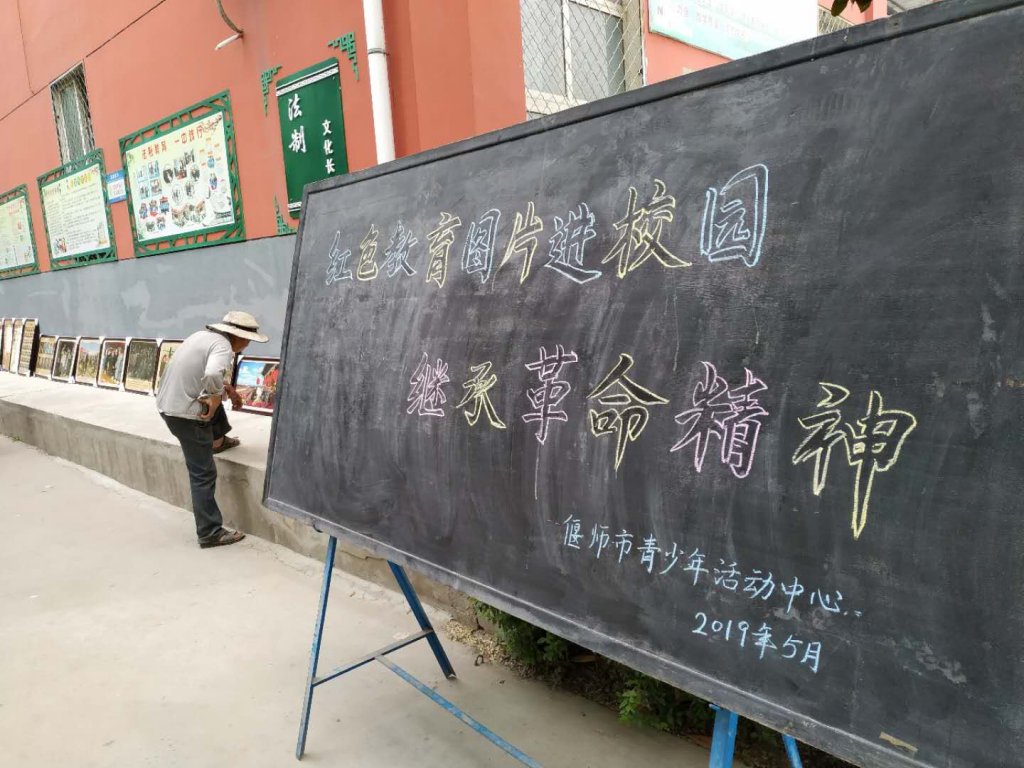 法制
文化长
红色教育图片进校园
继承革命精神
偃师市青少年活动中心
2019年5月